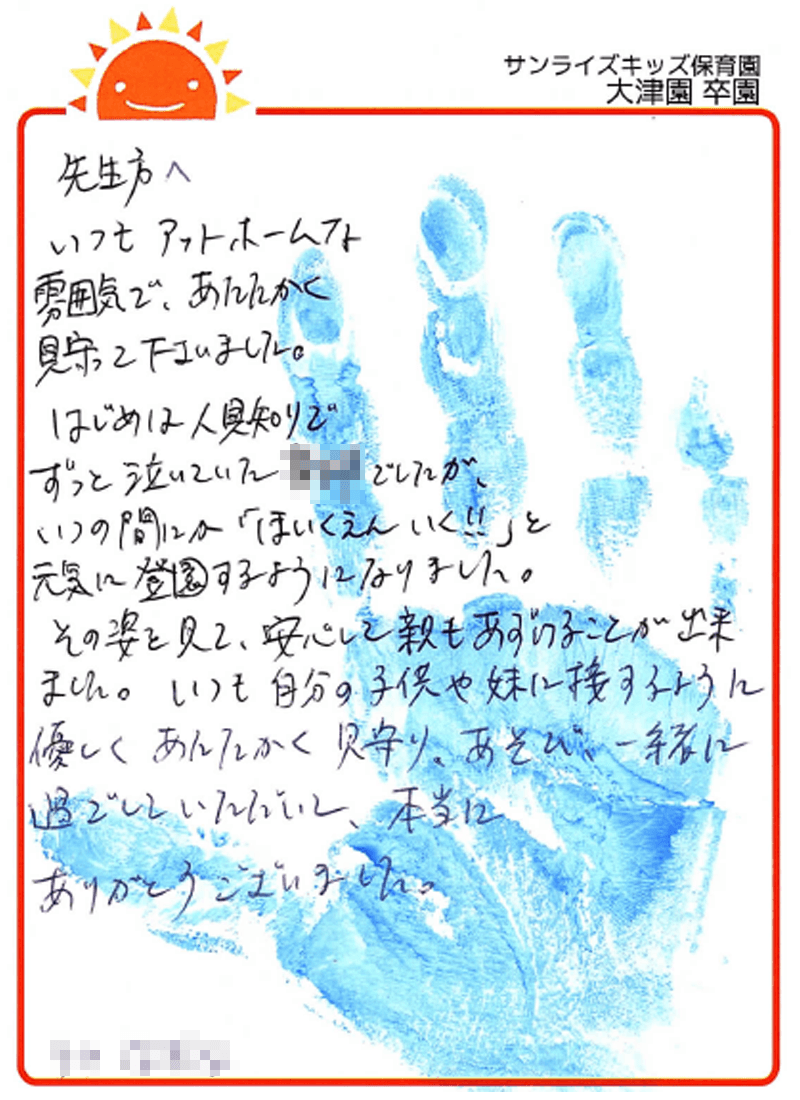 サンライズキッズ保育園
大津園 卒園
先生方へ
いつも アットホームな
雰囲気で、あたたかく
見守って下さいました。
はじめは人見知りで
ずっと泣いていた でしたが、
いつの間にか「ほいくえん いく!!」と
元気に登園するようになりました。
その姿を見て、安心して親もあずけることが出来
ました。いつも自分の子供や妹に接するように
優しく あたたかく 見守り、あそび、一緒に
過ごしていただいて、本当に
ありがとうございました。